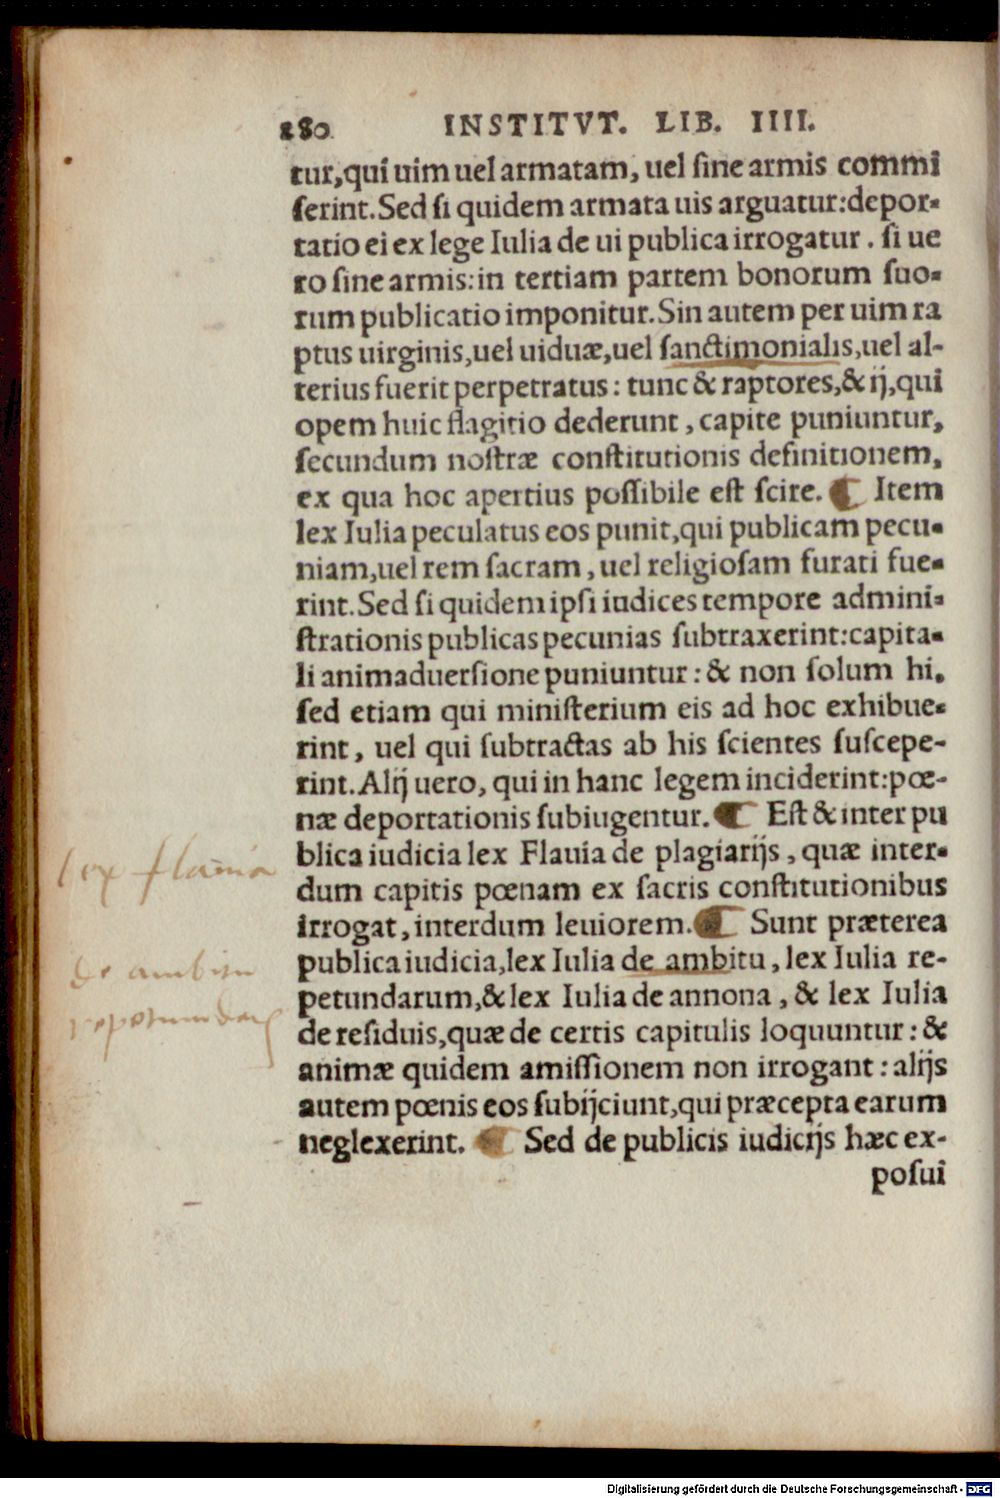 280 INSTITVT. LIB. IIII.
tur,qui uim uel armatam, uel sine armis commi
serint.Sed si quidem armata uis arguatur:depor-
tatio ei ex lege Iulia de ui publica irrogatur. si ue
ro sine armis:in tertiam partem bonorum suo-
rum publicatio imponitur.Sin autem per uim ra
ptus uirginis,uel uiduæ,uel sanctimonialis,uel al-
terius fuerit perpetratus: tunc & raptores,& ij,qui
opem huic flagitio dederunt, capite puniuntur,
secundum nostræ constitutionis definitionem,
ex qua hoc apertius possibile est scire. ¶ Item
lex Iulia peculatus eos punit,qui publicam pecu-
niam,uel rem sacram, uel religiosam furati fue-
rint.Sed si quidem ipsi iudices tempore admini-
strationis publicas pecunias subtraxerint:capita-
li animaduersione puniuntur: & non solum hi,
sed etiam qui ministerium eis ad hoc exhibue-
rint, uel qui subtractas ab his scientes suscepe-
rint.Alij uero, qui in hanc legem inciderint:pœ-
næ deportationis subiugentur. ¶ Est & inter pu
blica iudicia lex Flauia de plagiarijs, quæ inter-
dum capitis pœnam ex sacris constitutionibus
irrogat, interdum leuiorem. ¶ Sunt præterea
publica iudicia,lex Iulia de ambitu, lex Iulia re-
petundarum,& lex Iulia de annona, & lex Iulia
de residuis,quæ de certis capitulis loquuntur: &
animæ quidem amissionem non irrogant: alijs
autem pœnis eos subijciunt,qui præcepta earum
neglexerint. ¶ Sed de publicis iudicijs hæc ex-
posui
lex flauia
de ambitu
repetundarum
Digitalisierung gefördert durch die Deutsche Forschungsgemeinschaft - DFG